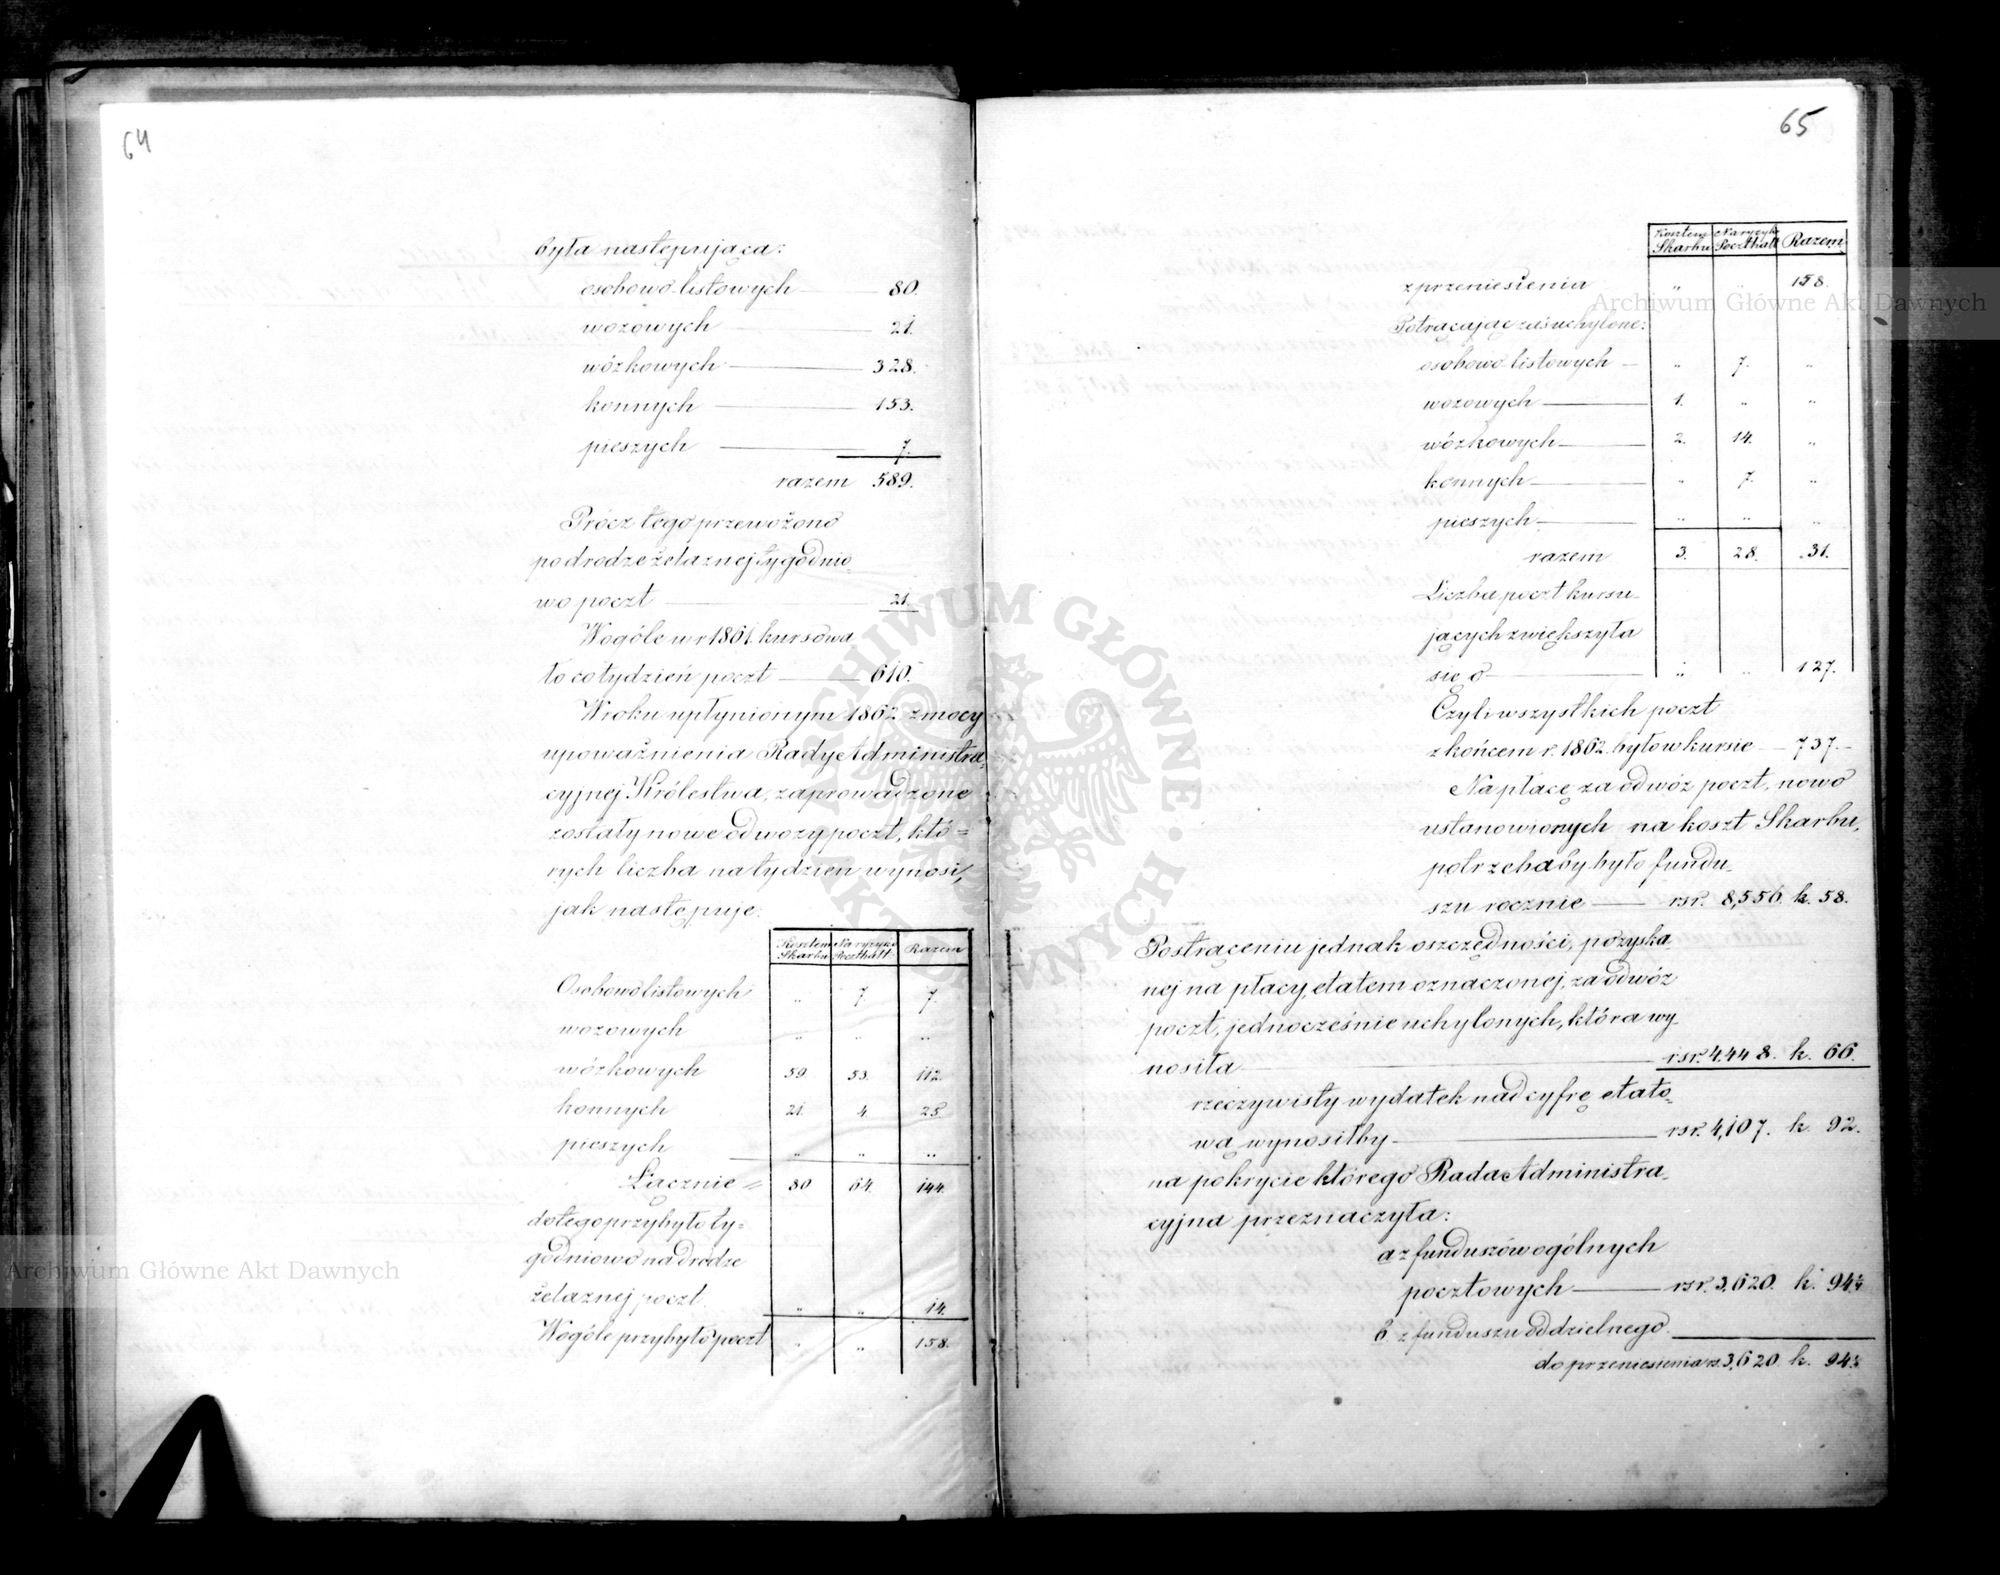 64
była następująca:
osobowo-listowych 80.
wozowych 21.
wózkowych 328.
konnych 153.
pieszych 7.
razem 589.
Prócz tego przewożono
po drodze żelaznej tygodnio-
wo poczt 21.
Wogóle w r 1861. kursowa-
ło co tydzień poczt 610.
W roku upłynionym 1862 z mocy
upoważnienia Rady Administra-
cyjnej Królestwa, zaprowadzone
zostały nowe odwozy poczt, któ=
rych liczba na tydzień wynosi,
jak następuje:
Kosztem Skarbu Na ryzyko Poczthalt: Razem
Osobowo listowych „ 7. 7.
wozowych „ „ „
wózkowych 59. 53. 112.
konnych 21. 4 25.
pieszych „ „ „
Łącznie = 80 64. 144.
do tego przybyło ty-
godniowo na drodze
żelaznej poczt „ „ 14.
Wogóle przybyło poczt „ „ 158.
65
Kosztem Skarbu Na ryzyko Poczthalt Razem
z przeniesienia „ 158.
Potrącając zaś uchylone:
osobowo-listowych „ 7. „
wozowych 1. „ „
wózkowych 2. 14. „
konnych „ 7. „
pieszych „ „ „
razem 3. 28. 31.
Liczba poczt kursu-
jących zwiększyła
się o „ „ 127.
Czyli wszystkich poczt
z końcem r. 1862 było w kursie 737.
Na płacę za odwóz poczt, nowo
ustanowionych na koszt Skarbu,
potrzebaby było fundu-
szu rocznie rsr. 8,556. k. 58.
Po strąceniu jednak oszczędności, pozyska-
nej na płacy, etatem oznaczonej, za odwóz
poczt, jednocześnie uchylonych, która wy-
nosiła rsr. 4,448. k. 66.
rzeczywisty wydatek nad cyfrę etato-
wą wynosiłby rsr. 4,107. k. 92.
na pokrycie którego Rada Administra-
cyjna przeznaczyła:
a z funduszów ogólnych
pocztowych rsr. 3,620. k. 94½
b. z funduszu oddzielnego
do przeniesienia rs. 3,620 k. 94½
Archiwum Główne Akt Dawnych
Archiwum Główne Akt Dawnych
ARCHIWUM GŁÓWNE AKT DAWNYCH